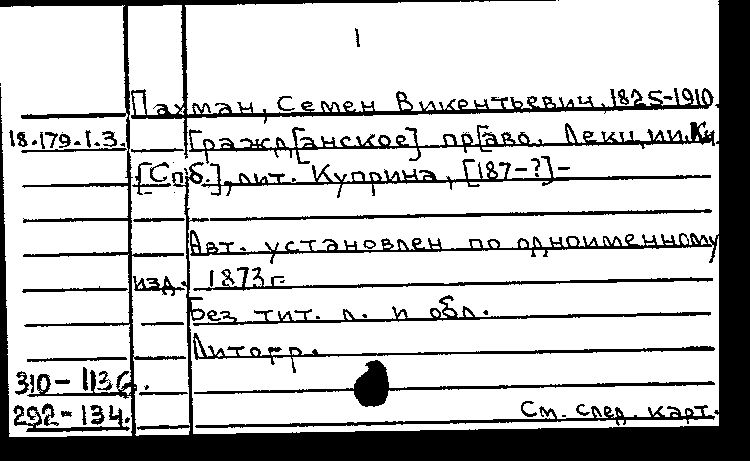 1
Пахман, Семен Викентьевич, 1825-1910.
18.179.1.3. Гражд[анское] пр[аво. Лекции. Кн.
[Спб.], лит. Куприна, [187-?]-
Авт. установлен по одноименному
изд. 1873 г.
Без тит. л. и обл.
Литогр.
310-113б.
292-134. См. след. карт.